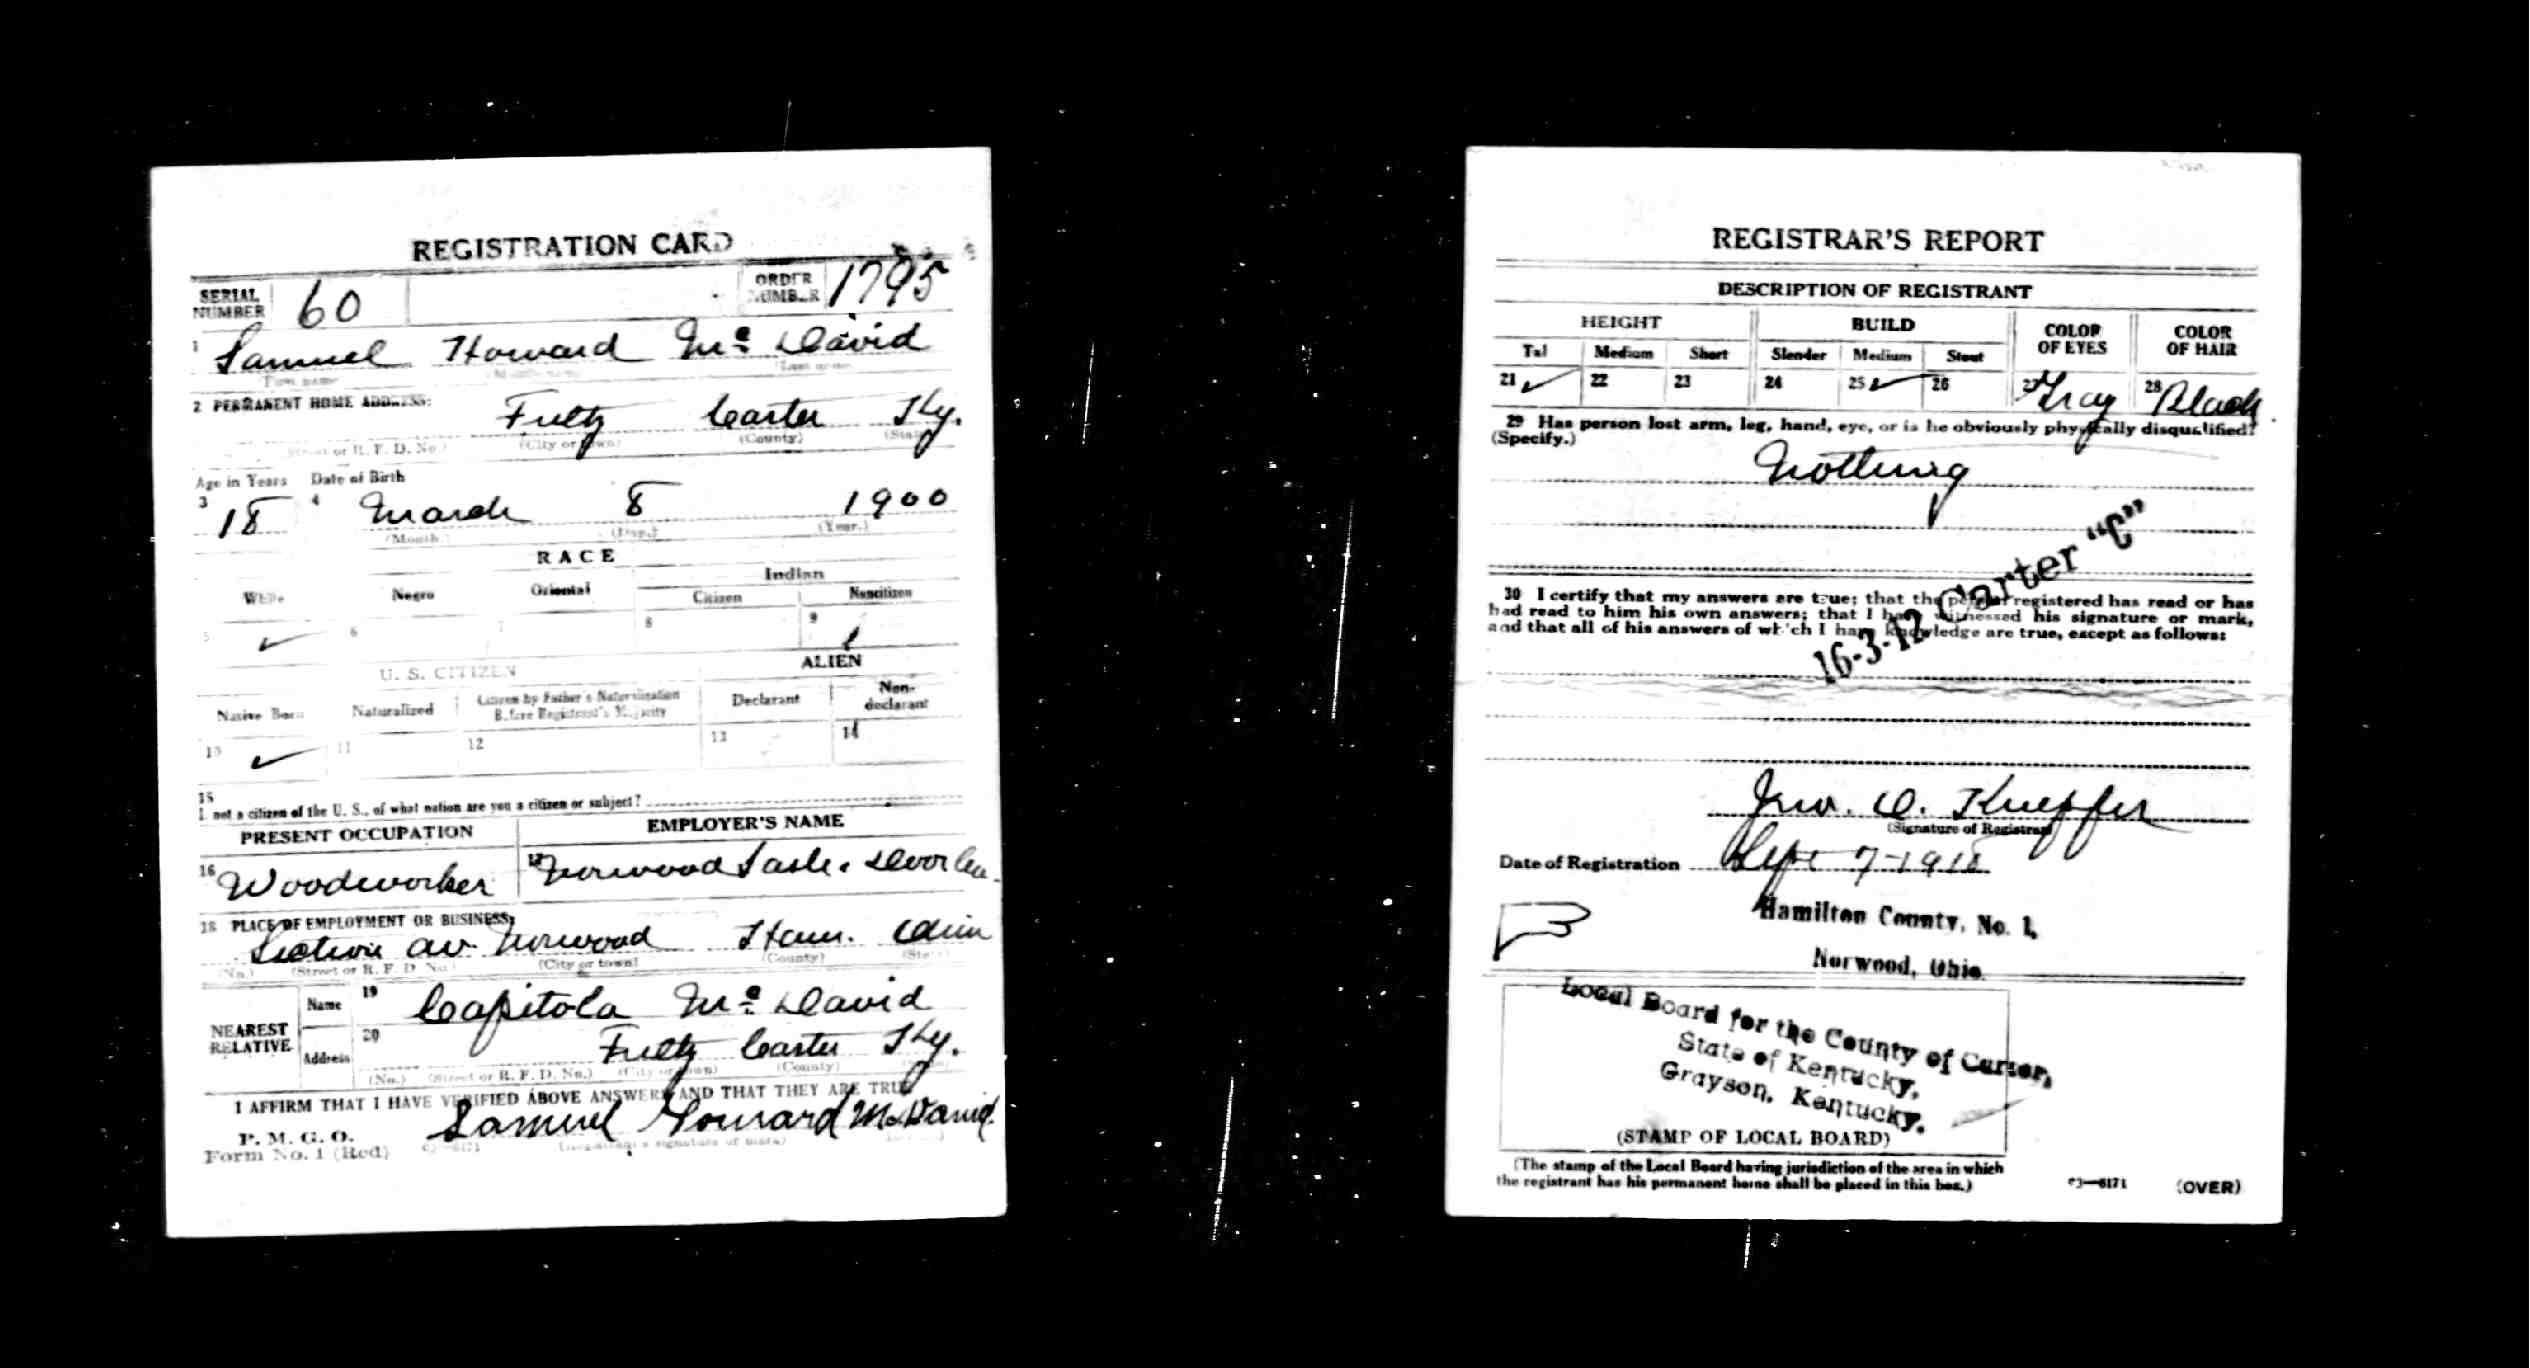 REGISTRATION CARD
SERIAL NUMBER 60 ORDER NUMBER 1795
1 Samuel Howard Mc David
First name Middle name Last name
2 PERMANENT HOME ADDRESS:
Fultz Carter Ky.
(Street or R. F. D. No.) (City or town) (County) (State)
Age in Years Date of Birth
3 18 4 March 8 1900
(Month.) (Day.) (Year.)
RACE
White Negro Oriental Indian
Citizen Noncitizen
5 ✓ 6 7 8 9
U. S. CITIZEN ALIEN
Native Born Naturalized Citizen by Father's Naturalization Before Registrant's Majority Declarant Non-declarant
10 ✓ 11 12 13 14
15
If not a citizen of the U. S., of what nation are you a citizen or subject?
PRESENT OCCUPATION EMPLOYER'S NAME
16 Woodworker 17 Norwood Sash & Door Co.
18 PLACE OF EMPLOYMENT OR BUSINESS:
Section av. Norwood Ham. Ohio
(No.) (Street or R. F. D. No.) (City or town) (County) (State)
NEAREST RELATIVE
Name 19 Capitola Mc David
Address 20 Fultz Carter Ky.
(No.) (Street or R. F. D. No.) (City or town) (County)
I AFFIRM THAT I HAVE VERIFIED ABOVE ANSWERS AND THAT THEY ARE TRUE
P. M. G. O.
Form No. 1 (Red) Samuel Howard McDavid.
(Registrant's signature or mark)
REGISTRAR'S REPORT
DESCRIPTION OF REGISTRANT
HEIGHT BUILD COLOR OF EYES COLOR OF HAIR
Tall Medium Short Slender Medium Stout
21 ✓ 22 23 24 25 ✓ 26 27 Gray 28 Black
29 Has person lost arm, leg, hand, eye, or is he obviously physically disqualified?
(Specify.)
Nothing
30 I certify that my answers are true; that the person registered has read or has
had read to him his own answers; that I have witnessed his signature or mark,
and that all of his answers of which I have knowledge are true, except as follows:
16-3-12 Carter "C"
Jno. O.
(Signature of Registrar)
Date of Registration Sept 7-1918
Hamilton County, No. 1,
Norwood, Ohio.
Local Board for the County of Carter,
State of Kentucky,
Grayson, Kentucky.
(STAMP OF LOCAL BOARD)
(The stamp of the Local Board having jurisdiction of the area in which
the registrant has his permanent home shall be placed in this box.)
03—6171 (OVER)